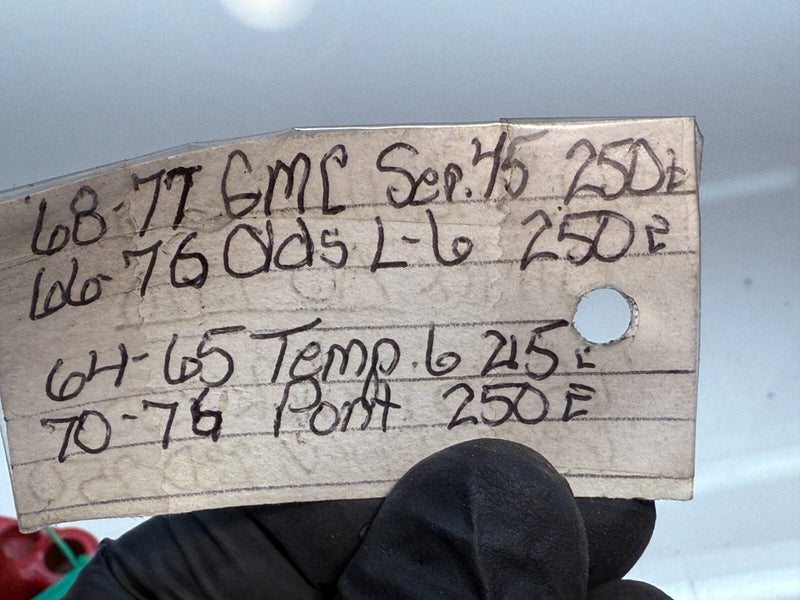 68-77 GMC Ser. 45 250E
66-76 Olds L-6 250E
64-65 Temp. 6 215E
70-76 Pont 250E